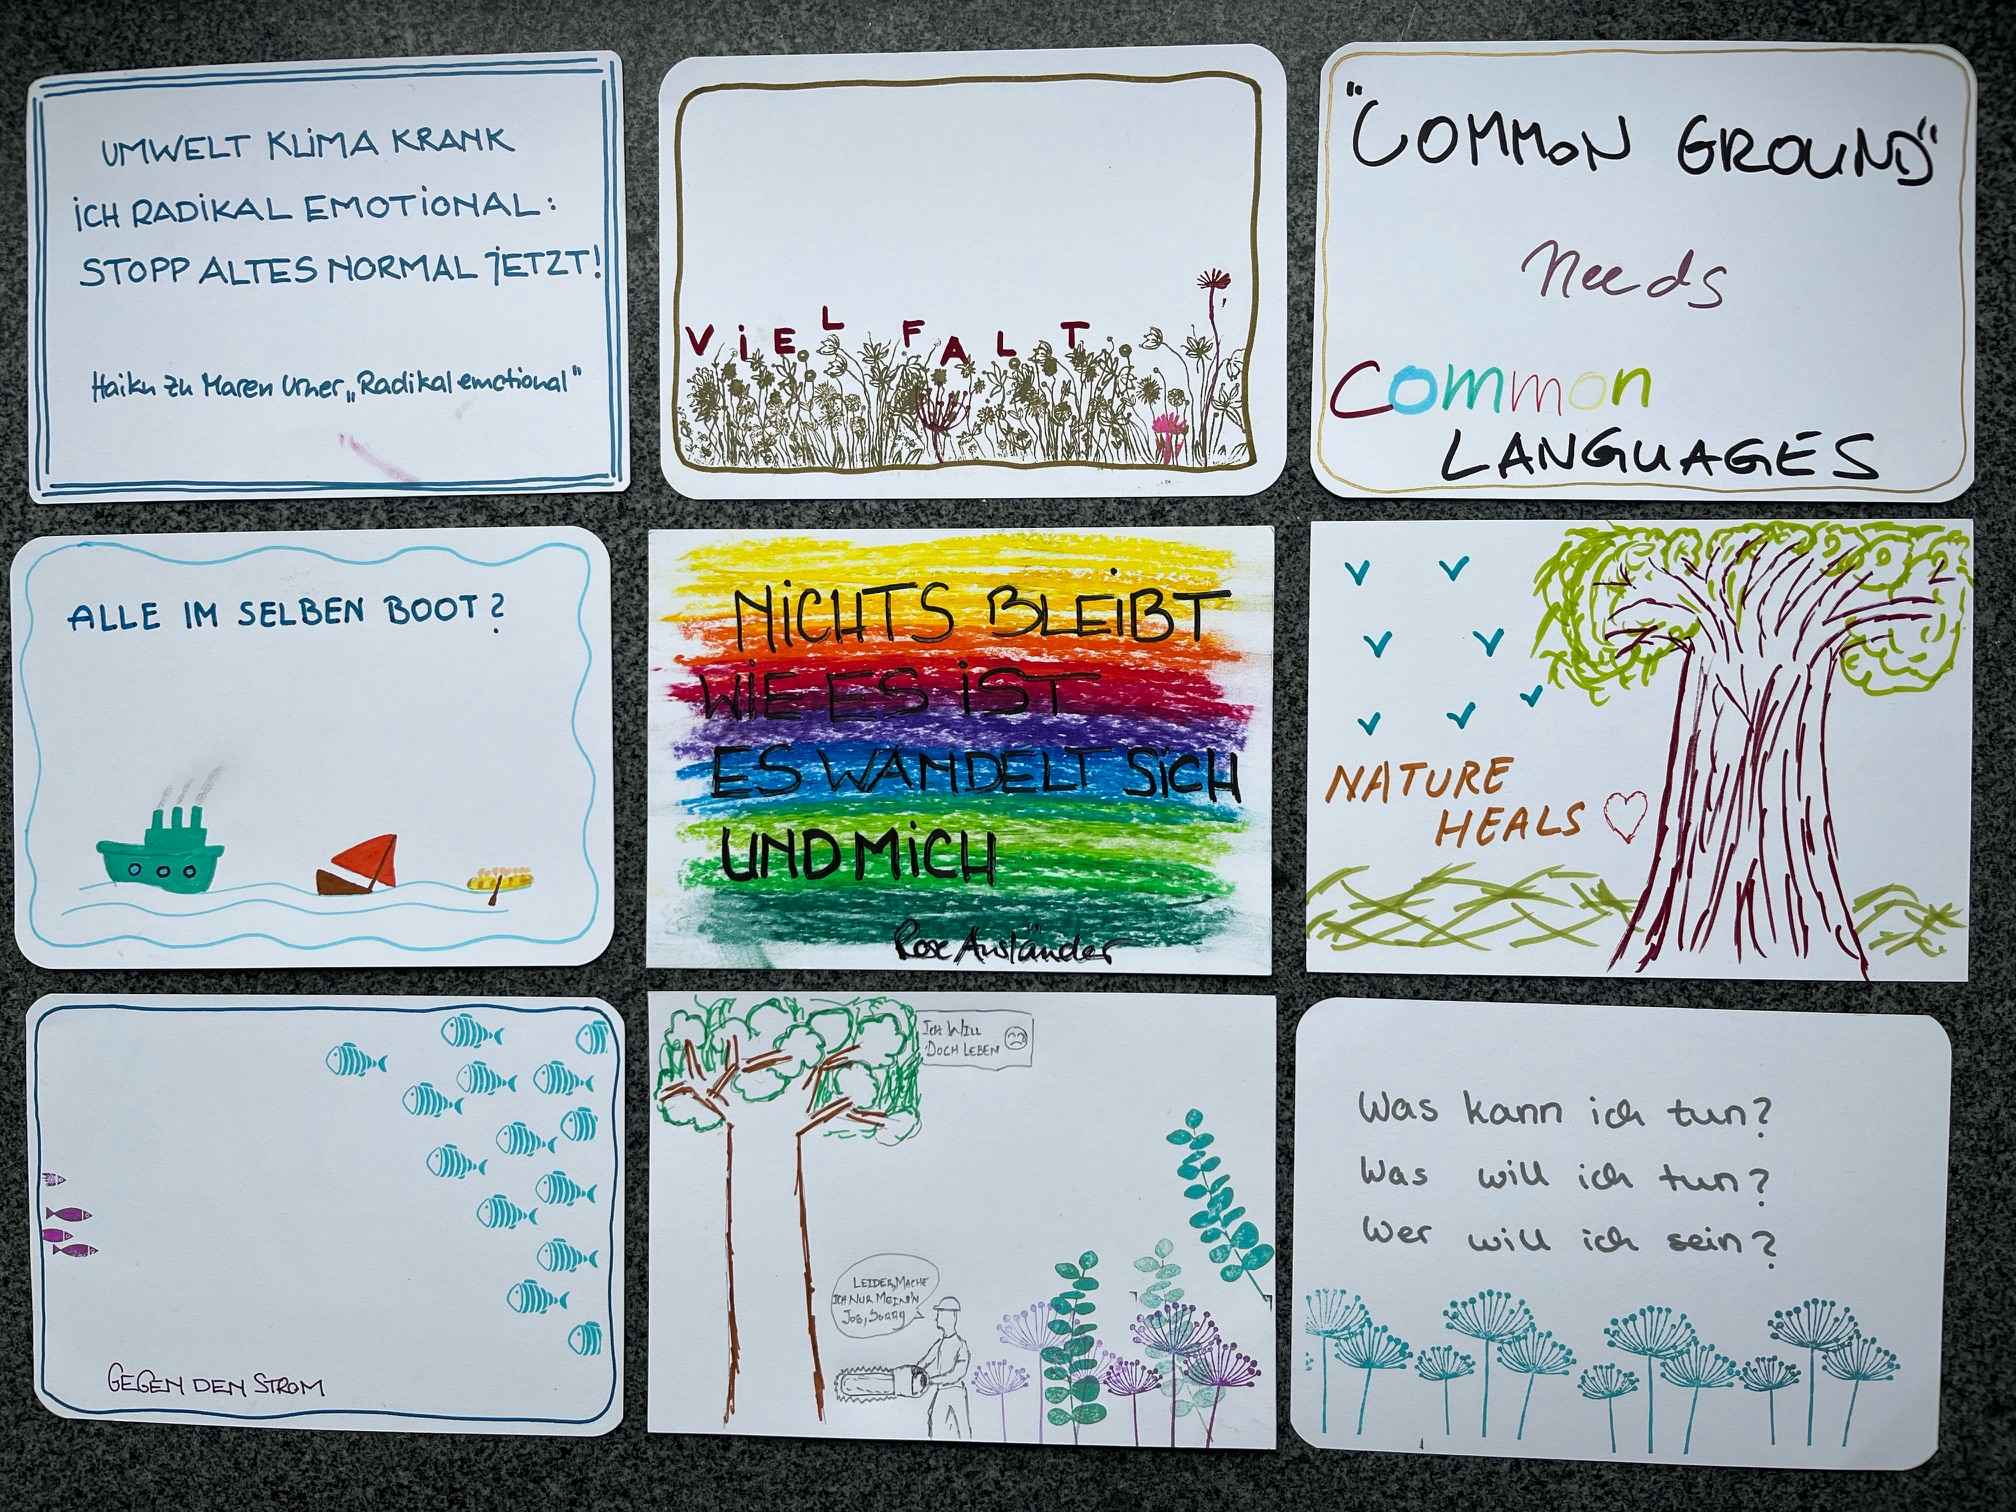 UMWELT KLIMA KRANK
ICH RADIKAL EMOTIONAL:
STOPP ALTES NORMAL JETZT!
Haiku zu Maren Urner „Radikal emotional"
VIELFALT
"COMMON GROUND"
Needs
Common
LANGUAGES
ALLE IM SELBEN BOOT?
NICHTS BLEIBT
WIE ES IST
ES WANDELT SICH
UND MICH
Rose Ausländer
NATURE
HEALS
GEGEN DEN STROM
ICH WILL
DOCH LEBEN
LEIDER MACHE
ICH NUR MEIN'N
JOB, SORRY
Was kann ich tun?
Was will ich tun?
Wer will ich sein?